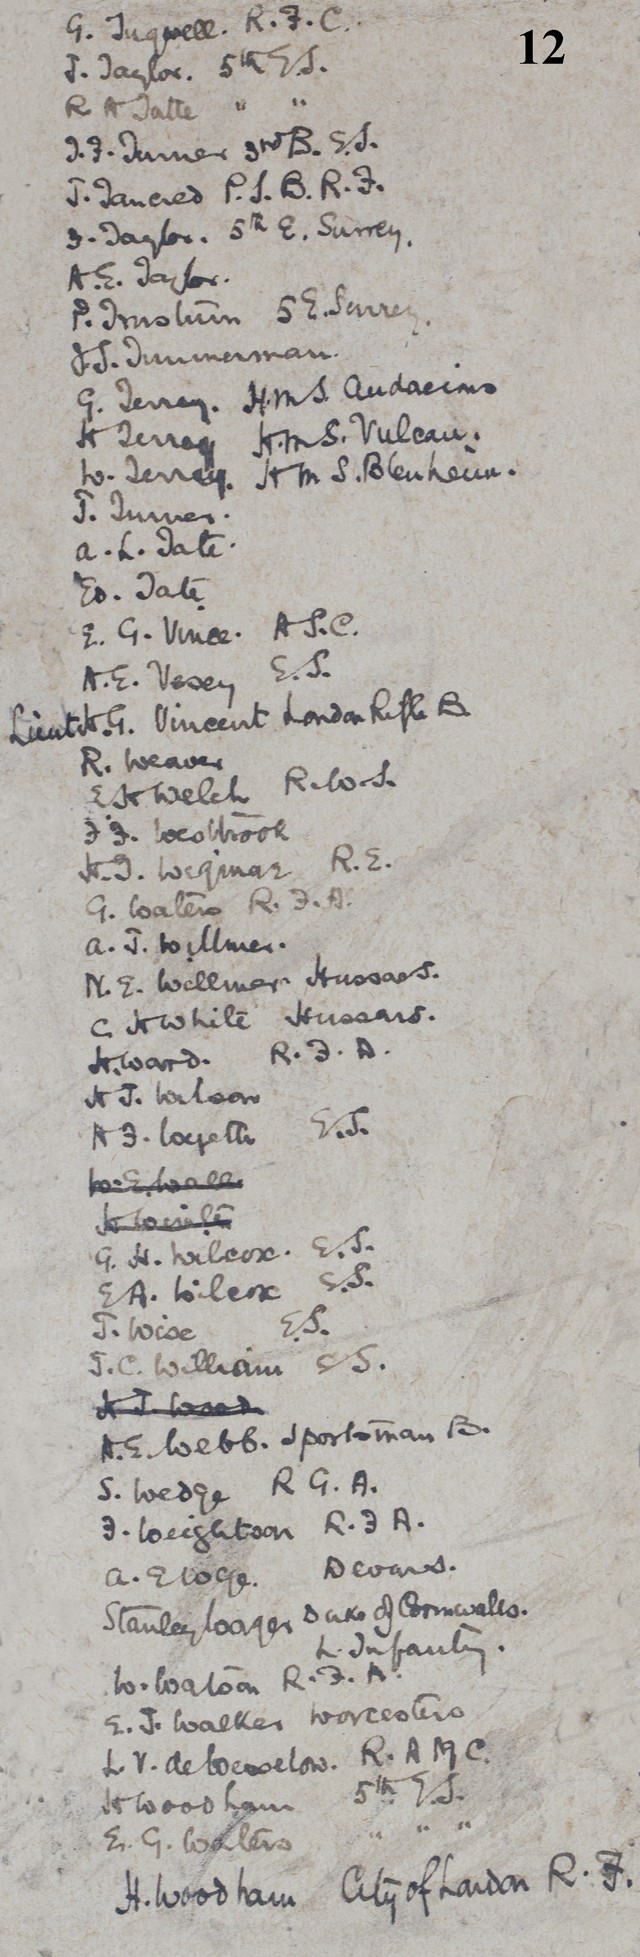 12
G. Tugwell. R.F.C.
J. Taylor. 5th E.S.
R A Tatte " "
J.F. Turner 3rd B. E.S.
J. Tancred P.S.B.R.F.
F. Taylor. 5th E. Surrey.
A.E. Taylor.
P. 5 E. Surrey.
J.S. Timmerman.
G. Terrey. H.M.S. Audacious
H Terrey H.M.S. Vulcan.
W. Terrey. H M S. Blenheim.
T. Turner.
A. L. Tate.
Ed. Tate
E. G. Vince. A S.C.
A.E. Vesey E.S.
Lieut H.G. Vincent London Rifle B.
R. Weaver
E H Welch R.W.S.
F F. Westbrook
H.J. R.E.
G. Waters R.F.A.
A. J. Willmer.
N. E. Willmer. Hussars.
C H White Hussars.
H. Ward. R.F.A.
H J. Wilson
A F. E.S.
W.E. Wall
H White
G. H. Wilcox. E.S.
E A. Wilcox E.S.
J. Wise E.S.
J.C. William E S.
H J. Wood
A.E. Webb. Sportsman B.
S. Wedge R G. A.
F. Weightson R.F A.
A. E Woge. Devons.
Stanley Duke of Cornwalls.
L. Infantry.
W. Watson R.F.A.
E. J. Walker Worcesters
L.V. de Wesselow. R.A M C.
H Woodham 5th E.S.
E. G. Waters " " "
H. Woodham City of London R. F.